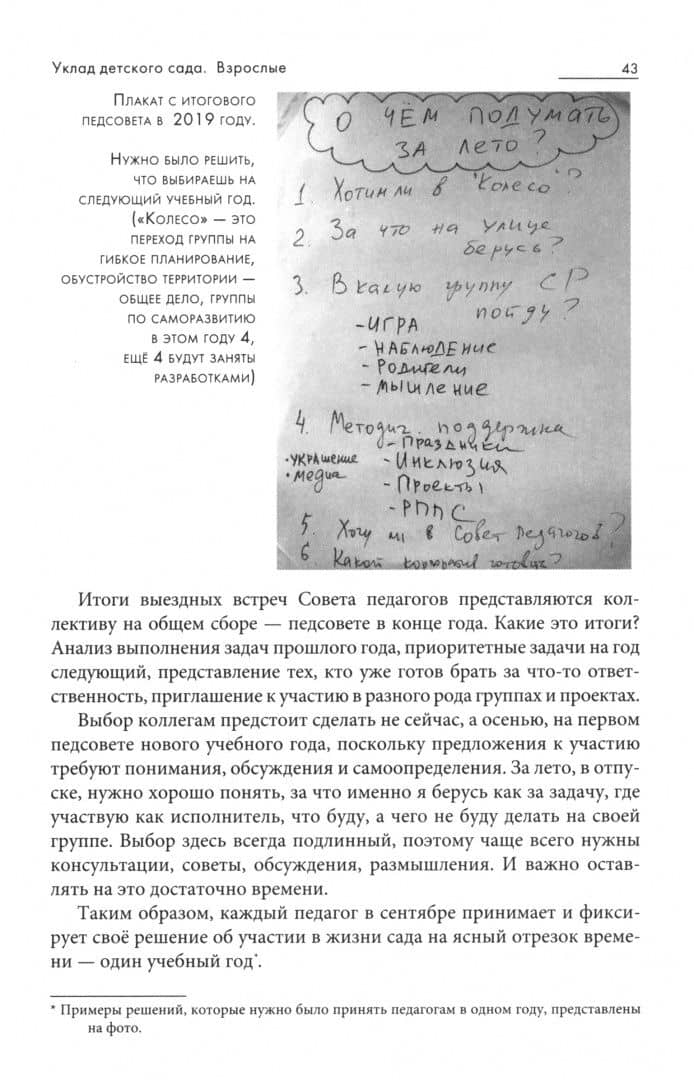 Уклад детского сада. Взрослые 43
Плакат с итогового
педсовета в 2019 году.
Нужно было решить,
что выбираешь на
следующий учебный год.
(«Колесо» — это
переход группы на
гибкое планирование,
обустройство территории —
общее дело, группы
по саморазвитию
в этом году 4,
ещё 4 будут заняты
разработками)
О ЧЁМ ПОДУМАТЬ
ЗА ЛЕТО?
1. Хотим ли в "Колесо"?
2. За что на улице
берусь?
3. В какую группу СР
пойду?
- ИГРА
- НАБЛЮДЕНИЕ
- Родители
- Мышление
4. Методич. поддержка
- Праздники
• Украшение - Инклюзия
• Медиа
- Проекты
- РППС
5. Хочу ли в Совет педагогов?
6 Какой корпоратив готовлю?
Итоги выездных встреч Совета педагогов представляются кол-
лективу на общем сборе — педсовете в конце года. Какие это итоги?
Анализ выполнения задач прошлого года, приоритетные задачи на год
следующий, представление тех, кто уже готов брать за что-то ответ-
ственность, приглашение к участию в разного рода группах и проектах.
Выбор коллегам предстоит сделать не сейчас, а осенью, на первом
педсовете нового учебного года, поскольку предложения к участию
требуют понимания, обсуждения и самоопределения. За лето, в отпу-
ске, нужно хорошо понять, за что именно я берусь как за задачу, где
участвую как исполнитель, что буду, а чего не буду делать на своей
группе. Выбор здесь всегда подлинный, поэтому чаще всего нужны
консультации, советы, обсуждения, размышления. И важно остав-
лять на это достаточно времени.
Таким образом, каждый педагог в сентябре принимает и фикси-
рует своё решение об участии в жизни сада на ясный отрезок време-
ни — один учебный год*.
* Примеры решений, которые нужно было принять педагогам в одном году, представлены
на фото.